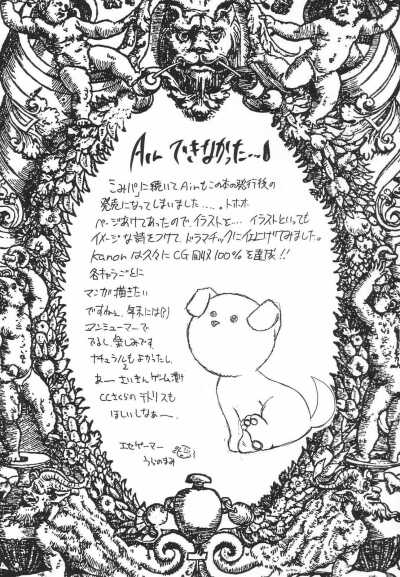 Air できなかった〜〜!
「こみパ」に続いてAirもこの本の発行後の
発売になってしまいました……。トホホ
ページあけてあったので、イラストを…。イラストといっても
イメージな詩をつけて、ドラマチックに仕上げてみました。
Kanonは久々にCG回収100%を達成!!
各キャラごとに
マンガ描きたい
ですねぇ。年末には(?)
コンシューマーで
でるし、楽しみです
ナチュラルもよかったし、
あー さいきんゲーム漬け
CCさくらのテトリスも
ほしいしなぁー。
エセゲーマー
うじのまみ